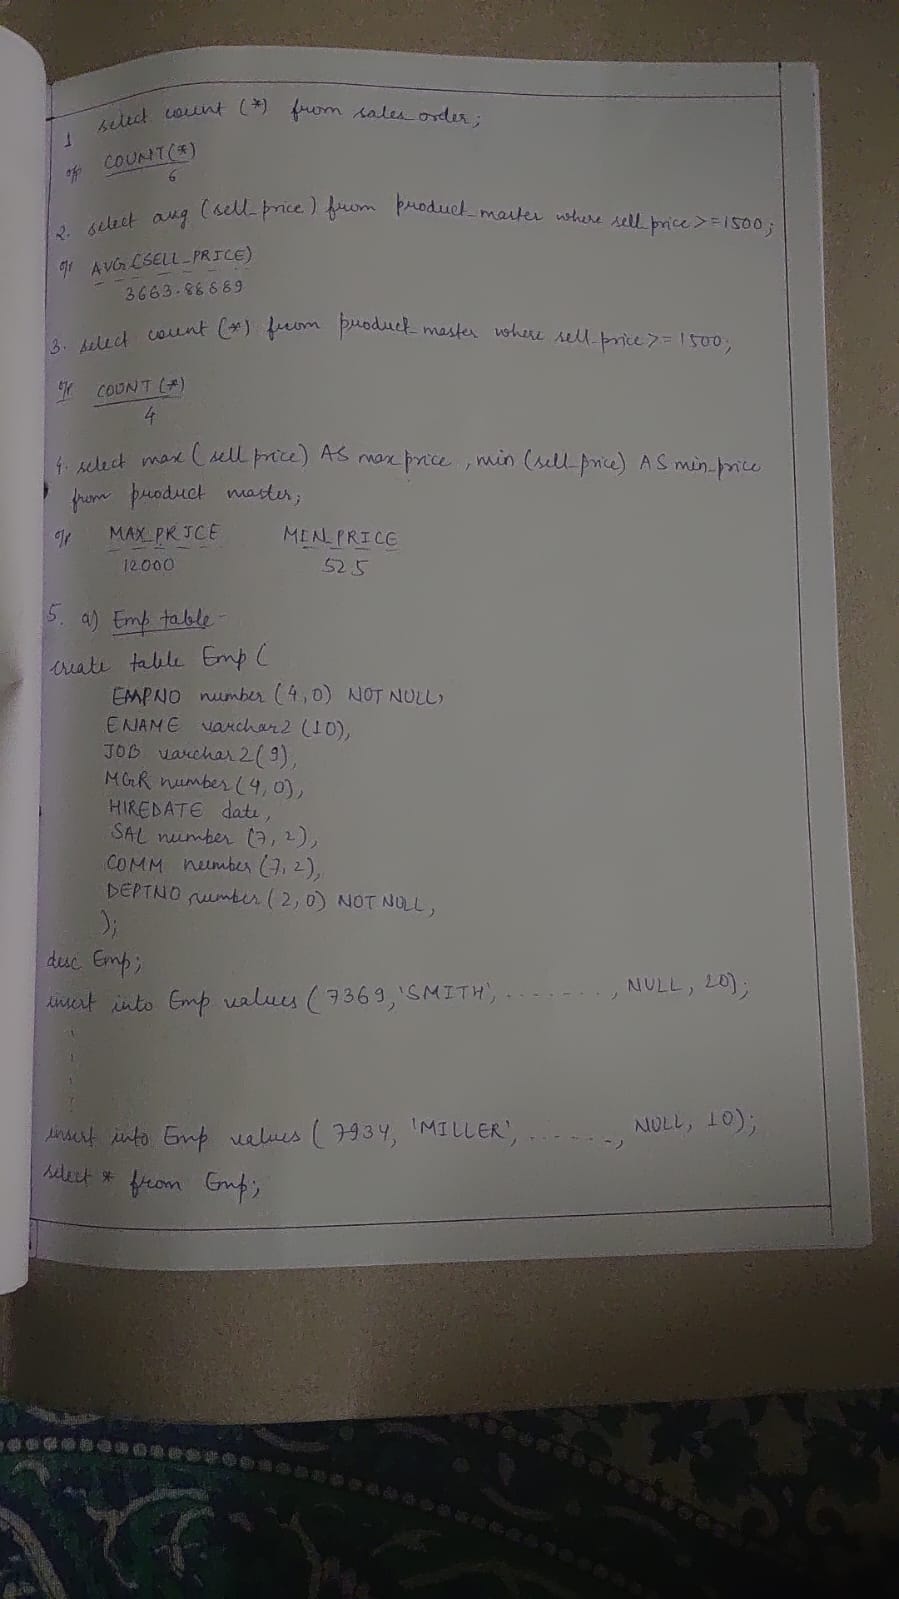 1 select count (*) from sales_order;
o/p COUNT(*)
6
2. select avg (sell_price) from product_master where sell_price >= 1500;
o/p AVG(SELL_PRICE)
3663.88889
3. select count (*) from product_master where sell_price >= 1500;
o/p COUNT (*)
4
4. select max (sell_price) AS max_price , min (sell_price) AS min_price
from product_master;
o/p MAX_PRICE MIN_PRICE
12000 525
5. a) Emp table -
create table Emp (
EMPNO number (4,0) NOT NULL,
ENAME varchar2 (10),
JOB varchar2(9),
MGR number (4,0),
HIREDATE date,
SAL number (7,2),
COMM number (7,2),
DEPTNO number (2,0) NOT NULL,
);
desc Emp;
insert into Emp values (7369, 'SMITH', ......., NULL, 20);
insert into Emp values (7934, 'MILLER', ......, NULL, 10);
select * from Emp;